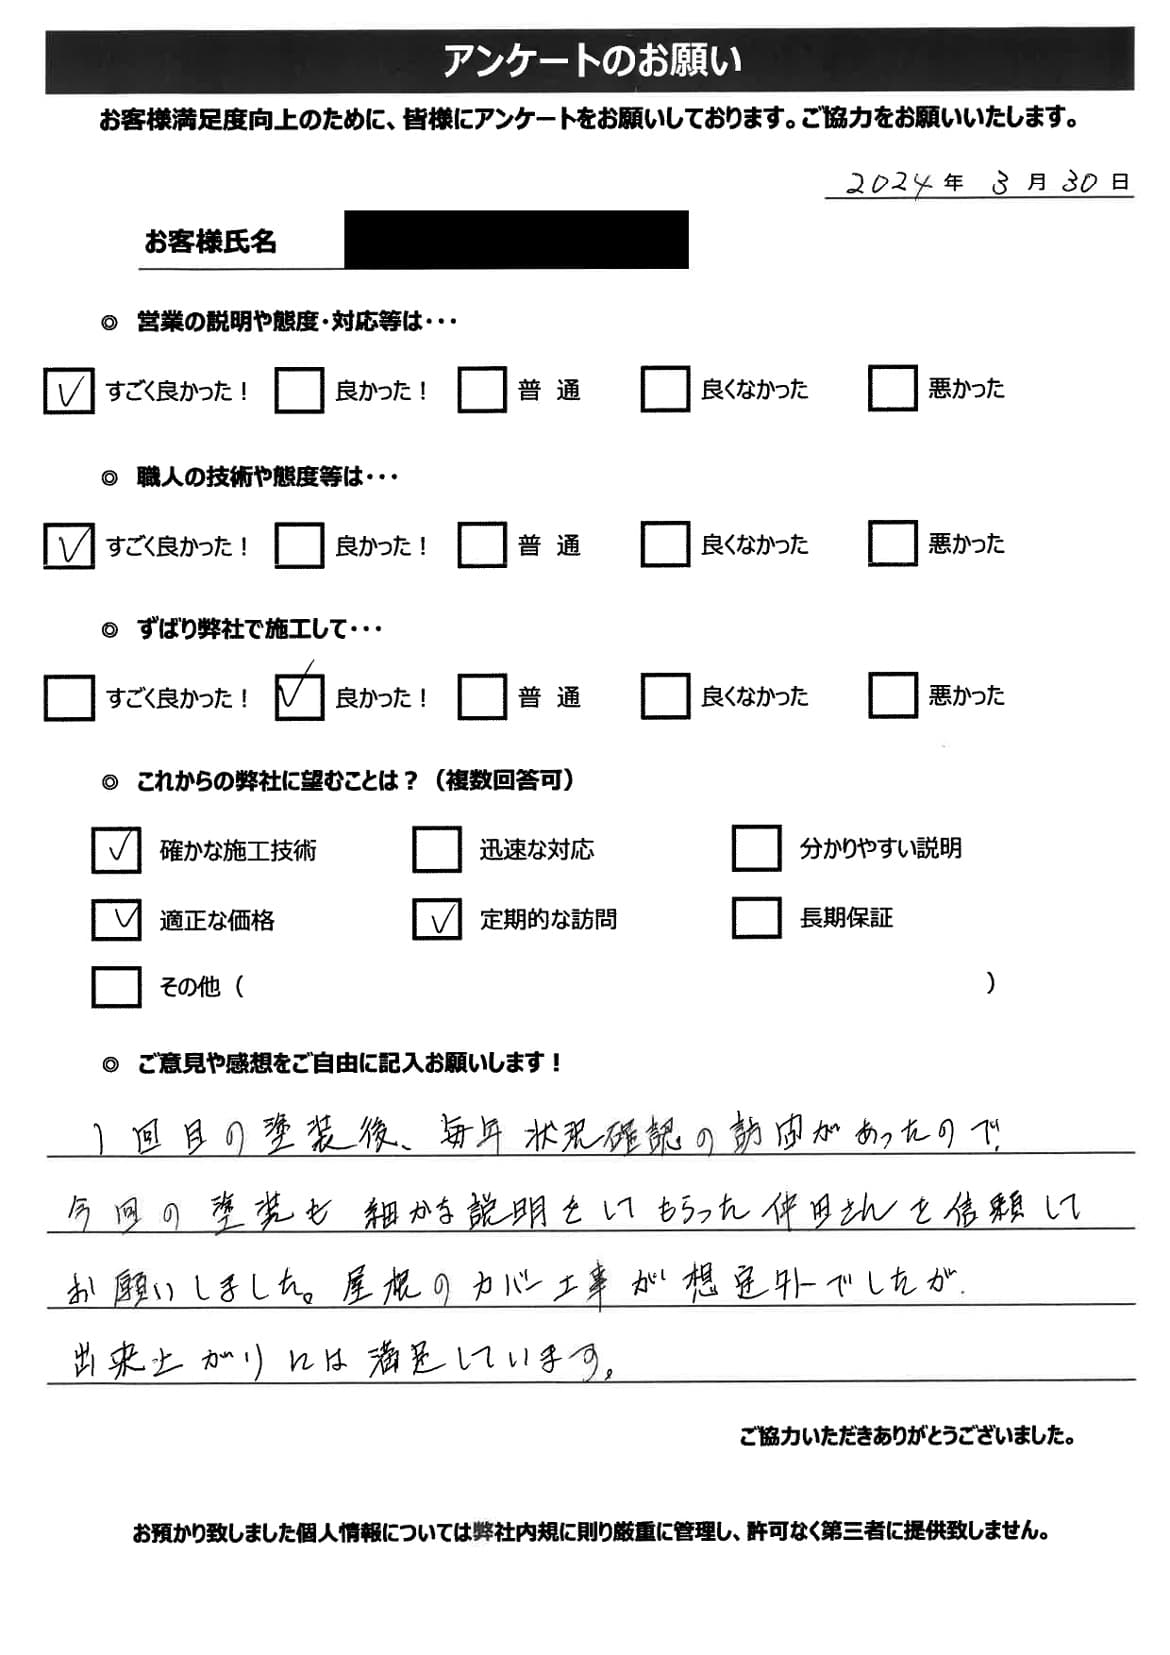 アンケートのお願い
お客様満足度向上のために、皆様にアンケートをお願いしております。ご協力をお願いいたします。
2024年 3月30日
お客様氏名
◎ 営業の説明や態度・対応等は・・・
すごく良かった！ 良かった！ 普 通 良くなかった 悪かった
◎ 職人の技術や態度等は・・・
すごく良かった！ 良かった！ 普 通 良くなかった 悪かった
◎ ずばり弊社で施工して・・・
すごく良かった！ 良かった！ 普 通 良くなかった 悪かった
◎ これからの弊社に望むことは？（複数回答可）
確かな施工技術 迅速な対応 分かりやすい説明
適正な価格 定期的な訪問 長期保証
その他（ ）
◎ ご意見や感想をご自由に記入お願いします！
1回目の塗装後、毎年状況確認の訪問があったので、
今回の塗装も細かな説明をしてもらった仲田さんを信頼して
お願いしました。屋根のカバー工事が想定外でしたが、
出来上がりには満足しています。
ご協力いただきありがとうございました。
お預かり致しました個人情報については弊社内規に則り厳重に管理し、許可なく第三者に提供致しません。